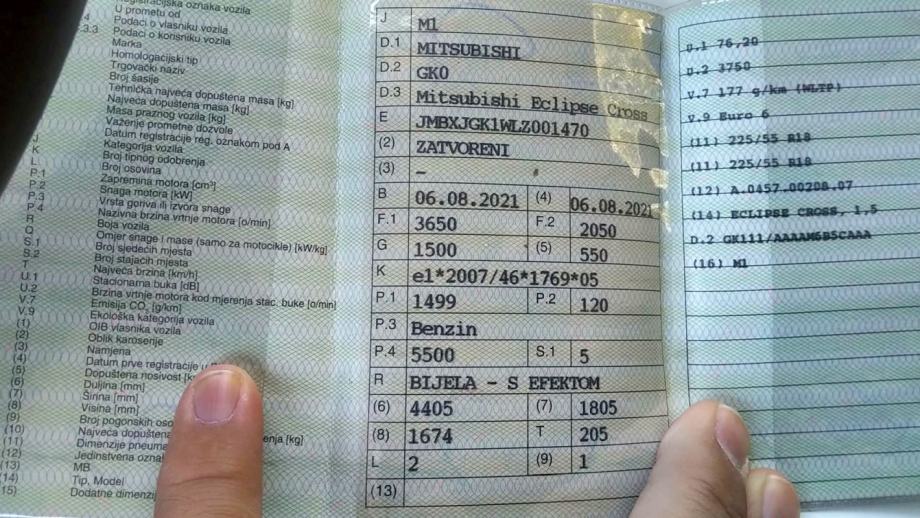 Registracijska oznaka vozila
U prometu od
Podaci o vlasniku vozila
C.3.3 Podaci o korisniku vozila
Marka
Homologacijski tip
Trgovački naziv
Broj šasije
Tehnička najveća dopuštena masa [kg]
Najveća dopuštena masa [kg]
Masa praznog vozila [kg]
Važenje prometne dozvole
Datum registracije reg. oznakom pod A
J Kategorija vozila
K Broj tipnog odobrenja
L Broj osovina
P.1 Zapremina motora [cm³]
P.2 Snaga motora [kW]
P.3 Vrsta goriva ili izvora snage
P.4 Nazivna brzina vrtnje motora [o/min]
R Boja vozila
Q Omjer snage i mase (samo za motocikle) [kW/kg]
S.1 Broj sjedećih mjesta
S.2 Broj stajaćih mjesta
T Najveća brzina [km/h]
U.1 Stacionarna buka [dB]
U.2 Brzina vrtnje motora kod mjerenja stac. buke [o/min]
V.7 Emisija CO₂ [g/km]
V.9 Ekološka kategorija vozila
(1) OIB vlasnika vozila
(2) Oblik karoserije
(3) Namjena
(4) Datum prve registracije u
(5) Dopuštena nosivost
(6) Duljina [mm]
(7) Širina [mm]
(8) Visina [mm]
(9) Broj pogonskih
(10) Najveća dopuštena [kg]
(11) Dimenzije
(12) Jedinstvena
(13) MB
(14) Tip, Model
(15) Dodatne
J M1
D.1 MITSUBISHI
D.2 GK0
D.3 Mitsubishi Eclipse Cross
E JMBXJGK1WLZ001470
(2) ZATVORENI
(3) –
B 06.08.2021 (4) 06.08.2021
F.1 3650 F.2 2050
G 1500 (5) 550
K e1*2007/46*1769*05
P.1 1499 P.2 120
P.3 Benzin
P.4 5500 S.1 5
R BIJELA - S EFEKTOM
(6) 4405 (7) 1805
(8) 1674 T 205
L 2 (9) 1
(13)
U.1 76,20
U.2 3750
V.7 177 g/km (WLTP)
V.9 Euro 6
(11) 225/55 R18
(11) 225/55 R18
(12) A.0457.00208.07
(14) ECLIPSE CROSS, 1,5
D.2 GK111/AAAAM6B5CAAA
(16) M1